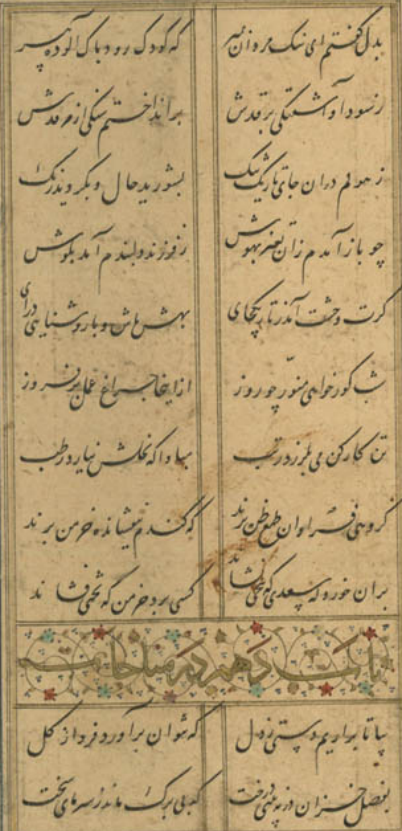 بدل گفتم ای ننگ مردان بمیر که کودک رود پاک آلوده پیر
ز سودا و آشفتگی بر قدش برانداختم سنگی از مرقدش
ز هولم دران جای تاریک تنگ بشورید حال و بگردید رنگ
چو باز آمدم زان تغیر بهوش ز فرزند دلبندم آمد بگوش
گرت وحشت آمد ز تاریک جای بهش باش و با روشنایی درآی
شب گور خواهی منور چو روز از اینجا چراغ عمل برفروز
تن کارکن می بلرزد ز تب مبادا که نخلش نیارد رطب
گروهی فراوان طمع ظن برند که گندم نیفشانده خرمن برند
بران خورد سعدی که بیخی نشاند کسی برد خرمن که تخمی فشاند
باب دهم در مناجات
بیا تا براریم دستی ز دل که نتوان برآورد فردا ز گل
بفصل خزان در نبینی درخت که بی برک ماند ز سرمای سخت